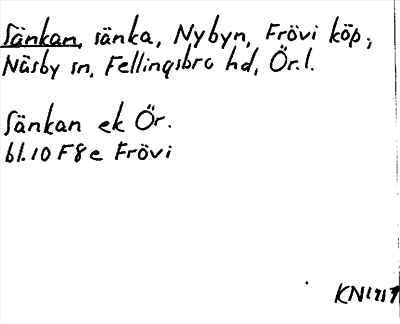 Sänkan, sänka, Nybyn, Frövi köp,
Näsby sn, Fellingsbro hd, Ör. l.
Sänkan ek Ör.
bl. 10 F 8 e Frövi